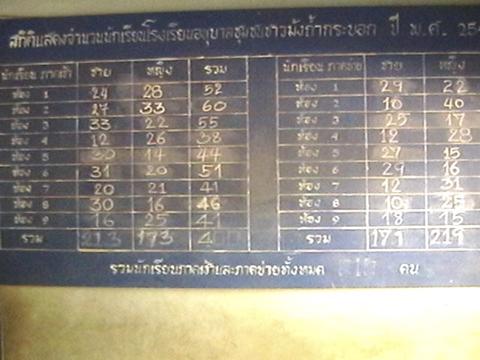 สถิติแสดงจำนวนนักเรียนโรงเรียนอนุบาลชุมชนชาวม้งถ้ำกระบอก ปี พ.ศ. 254
นักเรียน ภาคเช้า ชาย หญิง รวม นักเรียน ภาคบ่าย ชาย หญิง
ห้อง 1 24 28 52 ห้อง 1 29 22
ห้อง 2 27 33 60 ห้อง 2 10 40
ห้อง 3 33 22 55 ห้อง 3 25 17
ห้อง 4 12 26 38 ห้อง 4 12 28
ห้อง 5 30 14 44 ห้อง 5 27 15
ห้อง 6 31 20 51 ห้อง 6 29 16
ห้อง 7 20 21 41 ห้อง 7 12 31
ห้อง 8 30 16 46 ห้อง 8 10 25
ห้อง 9 16 25 41 ห้อง 9 18 15
รวม 213 173 รวม 171 219
รวมนักเรียนภาคเช้าและภาคบ่ายทั้งหมด คน